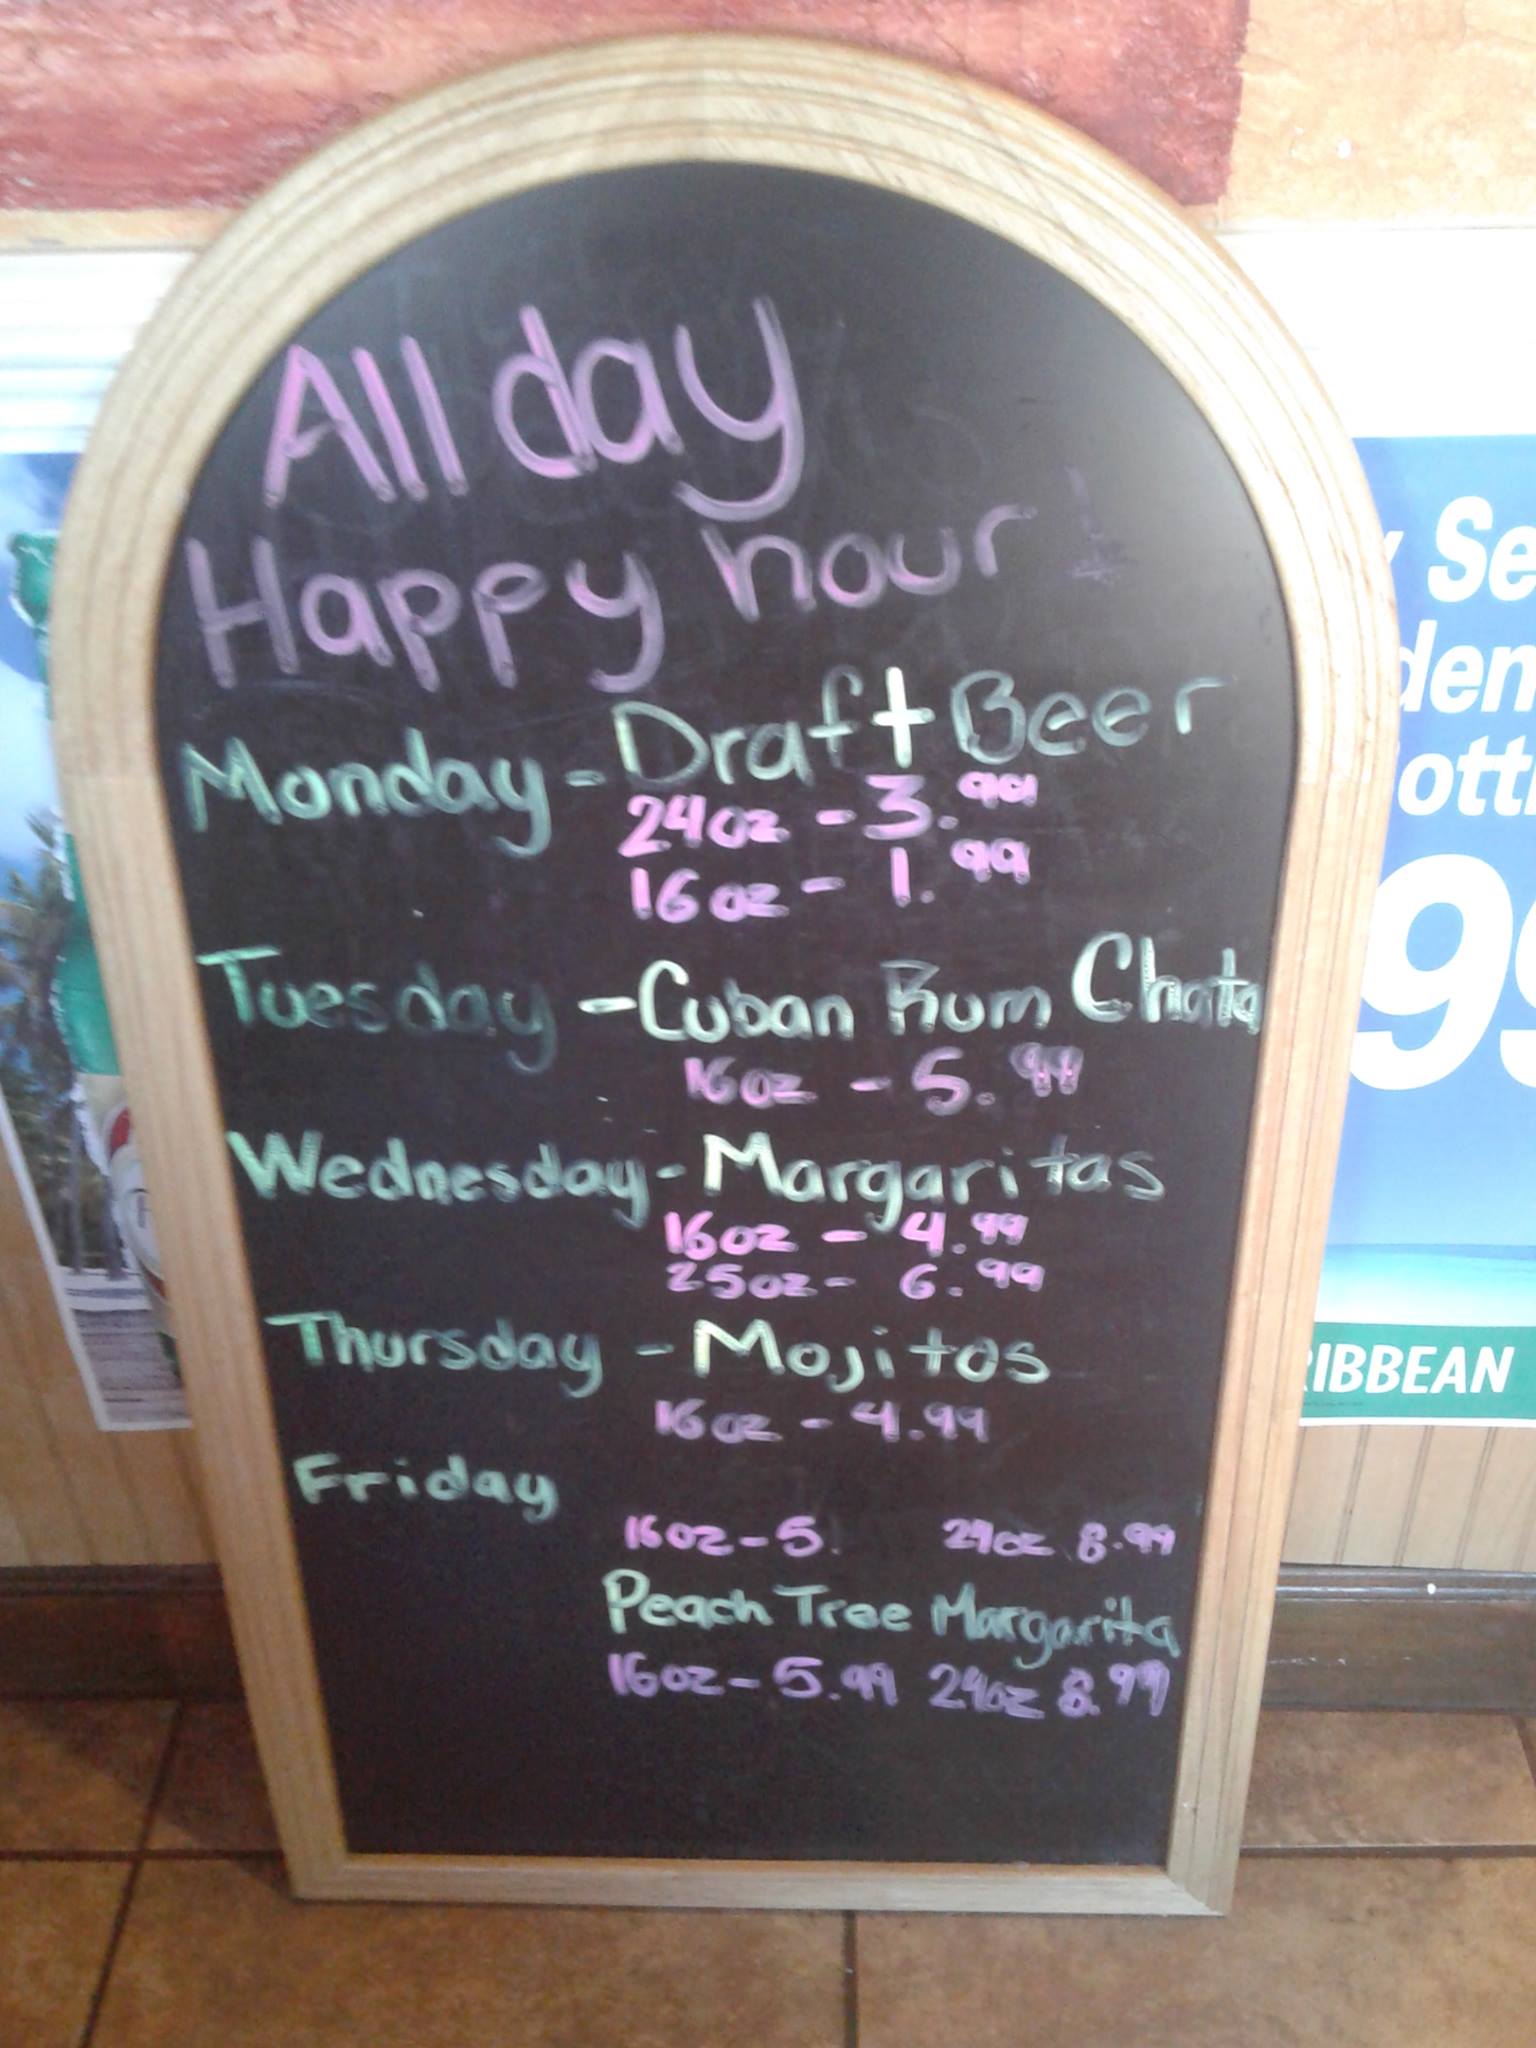 All day
Happy hour!
Monday - Draft Beer
24oz - 3.99
16oz - 1.99
Tuesday - Cuban Rum Chata
16oz - 5.99
Wednesday - Margaritas
16oz - 4.99
25oz - 6.99
Thursday - Mojitos
16oz - 4.99
Friday
16oz - 5. 24oz 8.99
Peach Tree Margarita
16oz - 5.99 24oz 8.99
Se
den
ott
99
RIBBEAN